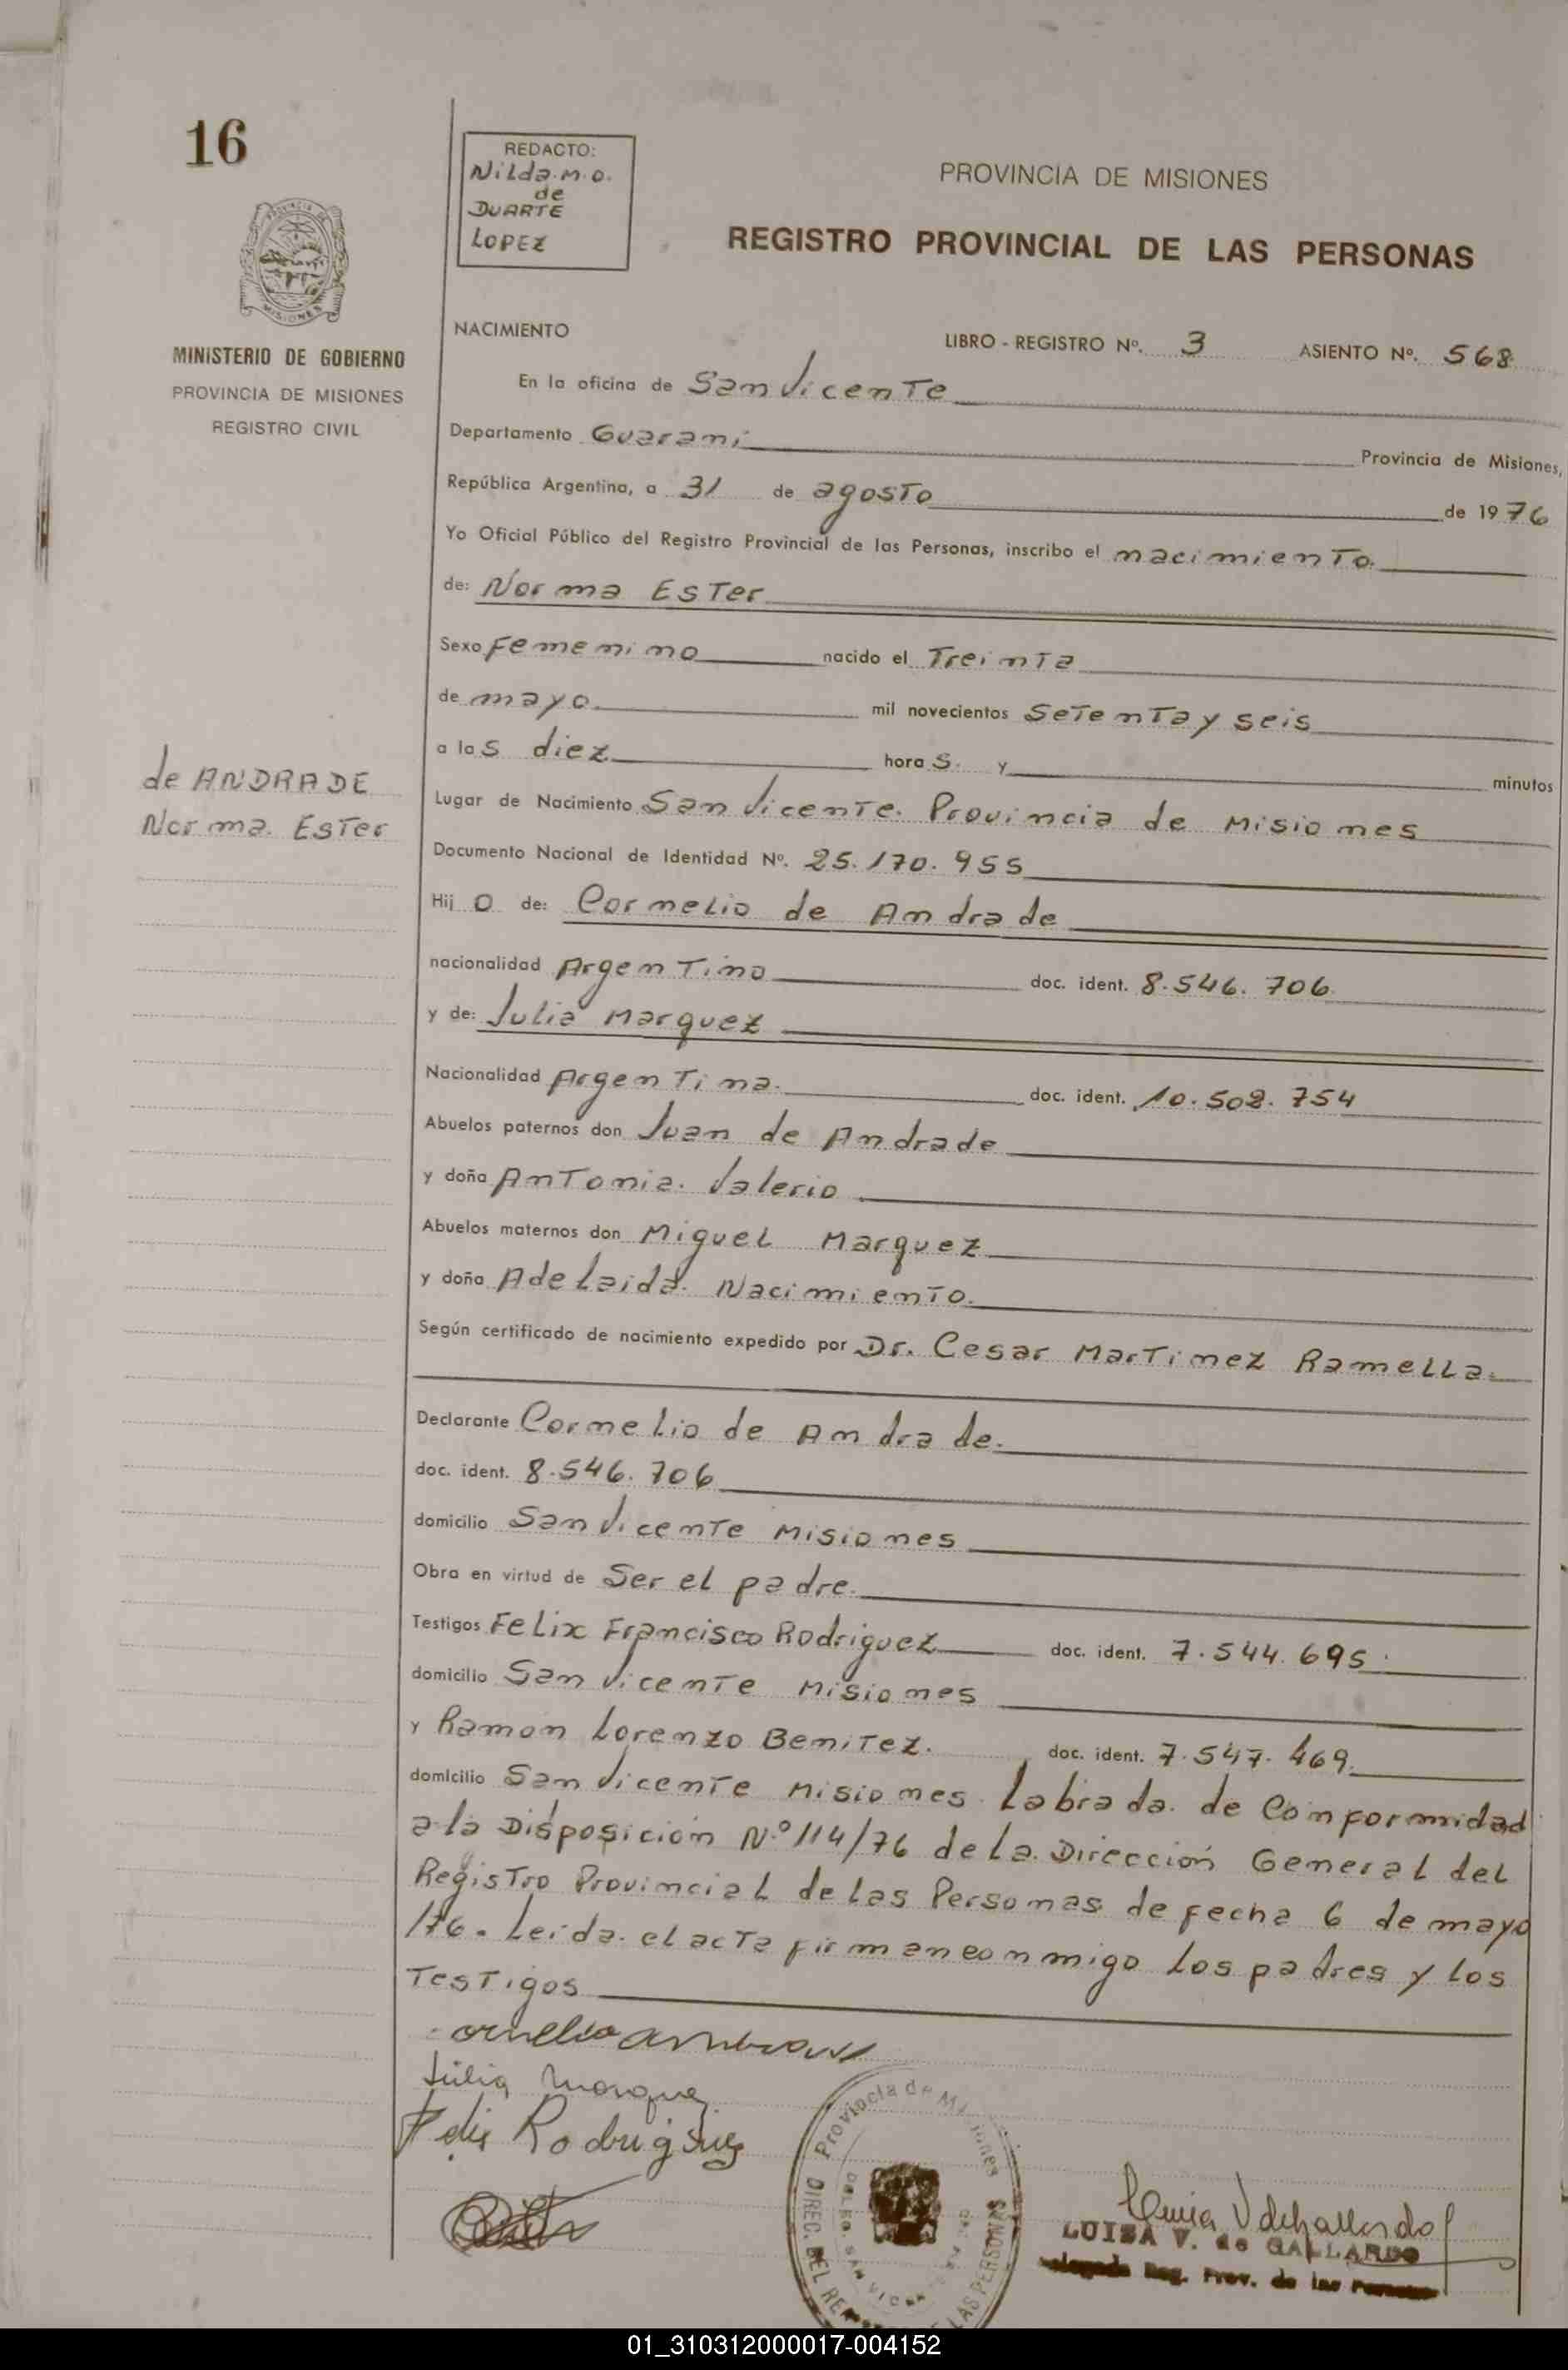 16
REDACTO:
Nilda.M.O.
de
DUARTE
LOPEZ
PROVINCIA DE MISIONES
REGISTRO PROVINCIAL DE LAS PERSONAS
MINISTERIO DE GOBIERNO
PROVINCIA DE MISIONES
REGISTRO CIVIL
NACIMIENTO LIBRO - REGISTRO Nº. 3 ASIENTO Nº. 568
En la oficina de San Vicente
Departamento Guarani Provincia de Misiones,
República Argentina, a 31 de agosto de 1976
Yo Oficial Público del Registro Provincial de las Personas, inscribo el nacimiento.
de: Norma Ester
Sexo Femenino nacido el Treinta
de mayo. mil novecientos Setenta y seis
a las diez horas. y minutos
de ANDRADE
Norma. Ester
Lugar de Nacimiento San Vicente. Provincia de Misiones
Documento Nacional de Identidad Nº. 25.170.955
Hijo de: Cornelio de Andrade
nacionalidad Argentino doc. ident. 8.546.706.
y de: Julia Marquez
Nacionalidad Argentina. doc. ident. 10.502.754
Abuelos paternos don Juan de Andrade
y doña Antonia. Valerio
Abuelos maternos don Miguel Marquez
y doña Adelaida. Nacimiento.
Según certificado de nacimiento expedido por Dr. Cesar Martinez Ramella.
Declarante Cornelio de Andrade.
doc. ident. 8.546.706
domicilio San Vicente Misiones
Obra en virtud de Ser el padre.
Testigos Felix Francisco Rodriguez doc. ident. 7.544.695
domicilio San Vicente Misiones
y Ramón Lorenzo Benitez. doc. ident. 7.547.469.
domicilio San Vicente Misiones. Labrada. de Conformidad
a la Disposición N.º 114/76 de la. Dirección General del
Registro Provincial de las Personas de fecha 6 de mayo
/76. Leída. el acta firman conmigo los padres y los
Testigos
Julia Marquez
Felix Rodriguez
Provincia de Misiones
DIREC. DEL REG LAS PERSONAS
DELEG. SAN VICENTE
LUISA V. de GALLARDO
Delegada Reg. Prov. de las Personas
01_310312000017-004152